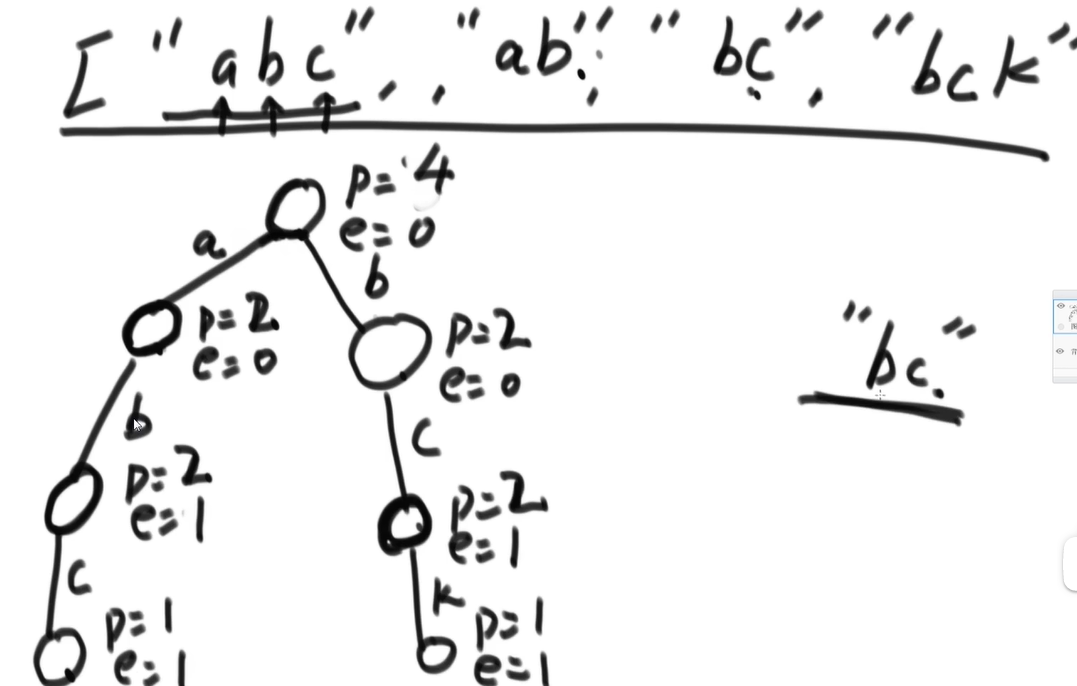 ["abc", "ab", "bc", "bck"
p=4
e=0
a
b
p=2
e=0
p=2
e=0
"bc"
b
c
p=2
e=1
p=2
e=1
c
k
p=1
e=1
p=1
e=1